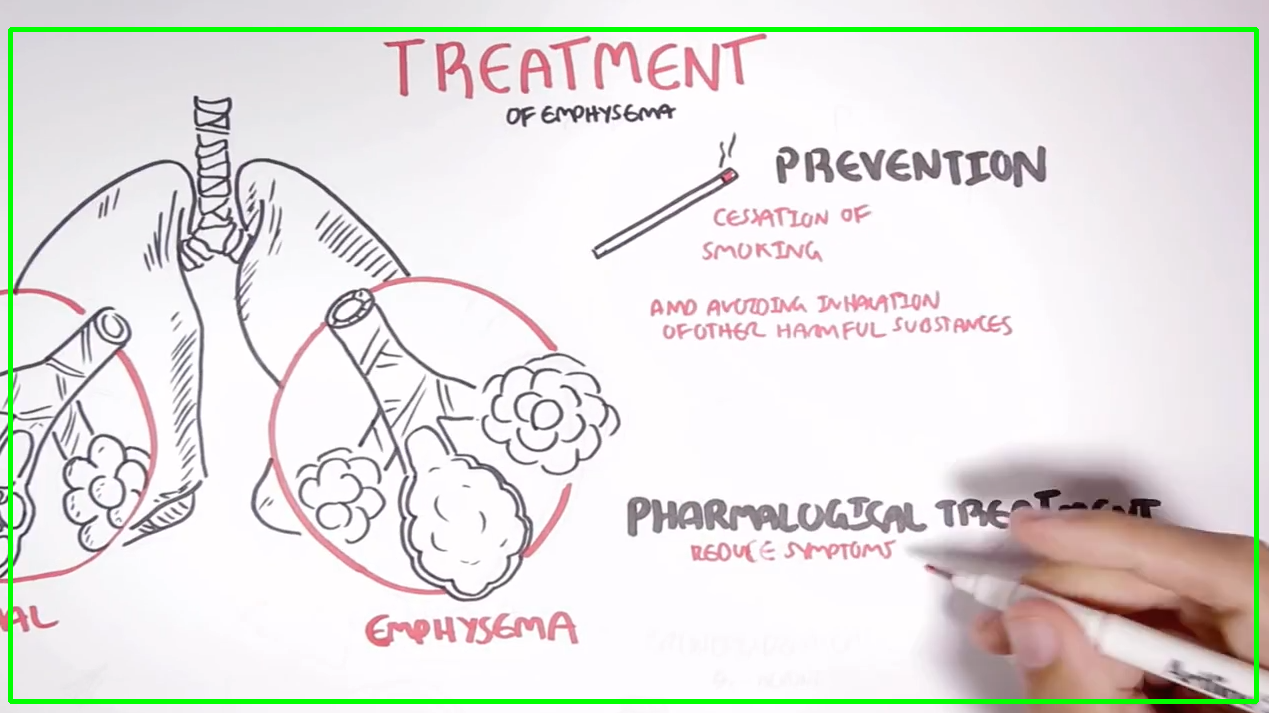 TREATMENT
OF EMPHYSEMA
PREVENTION
CESSATION OF
SMOKING
AND AVOIDING INHALATION
OF OTHER HARMFUL SUBSTANCES
PHARMALOGICAL TREATMENT
REDUCE SYMPTOMS
EMPHYSEMA